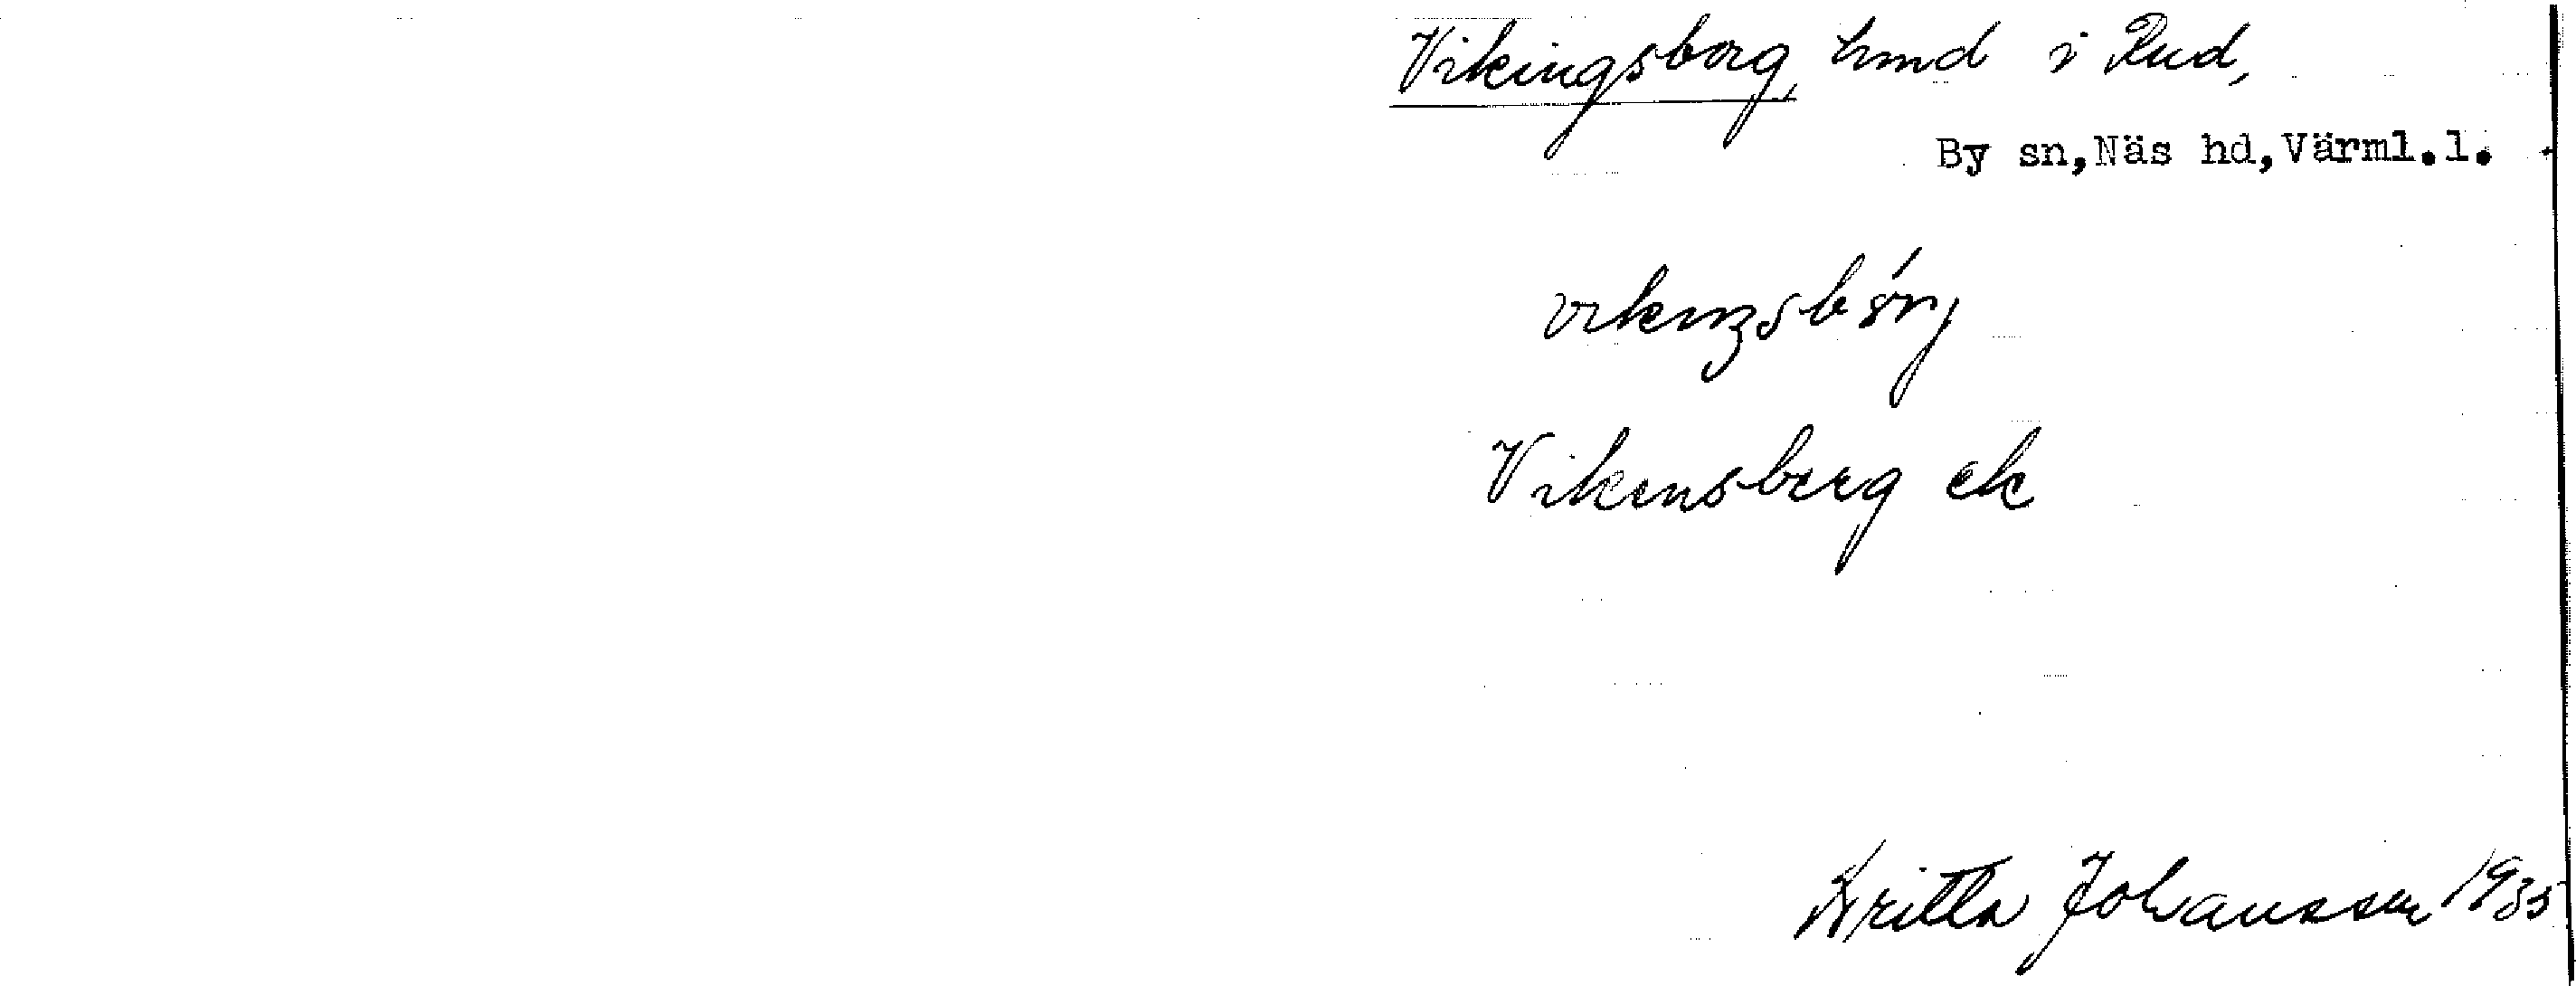 Vikingsborg, hmd i Rud,
By sn, Näs hd, Värml. l.
Vikensberg ek
Britta Johansson 1935